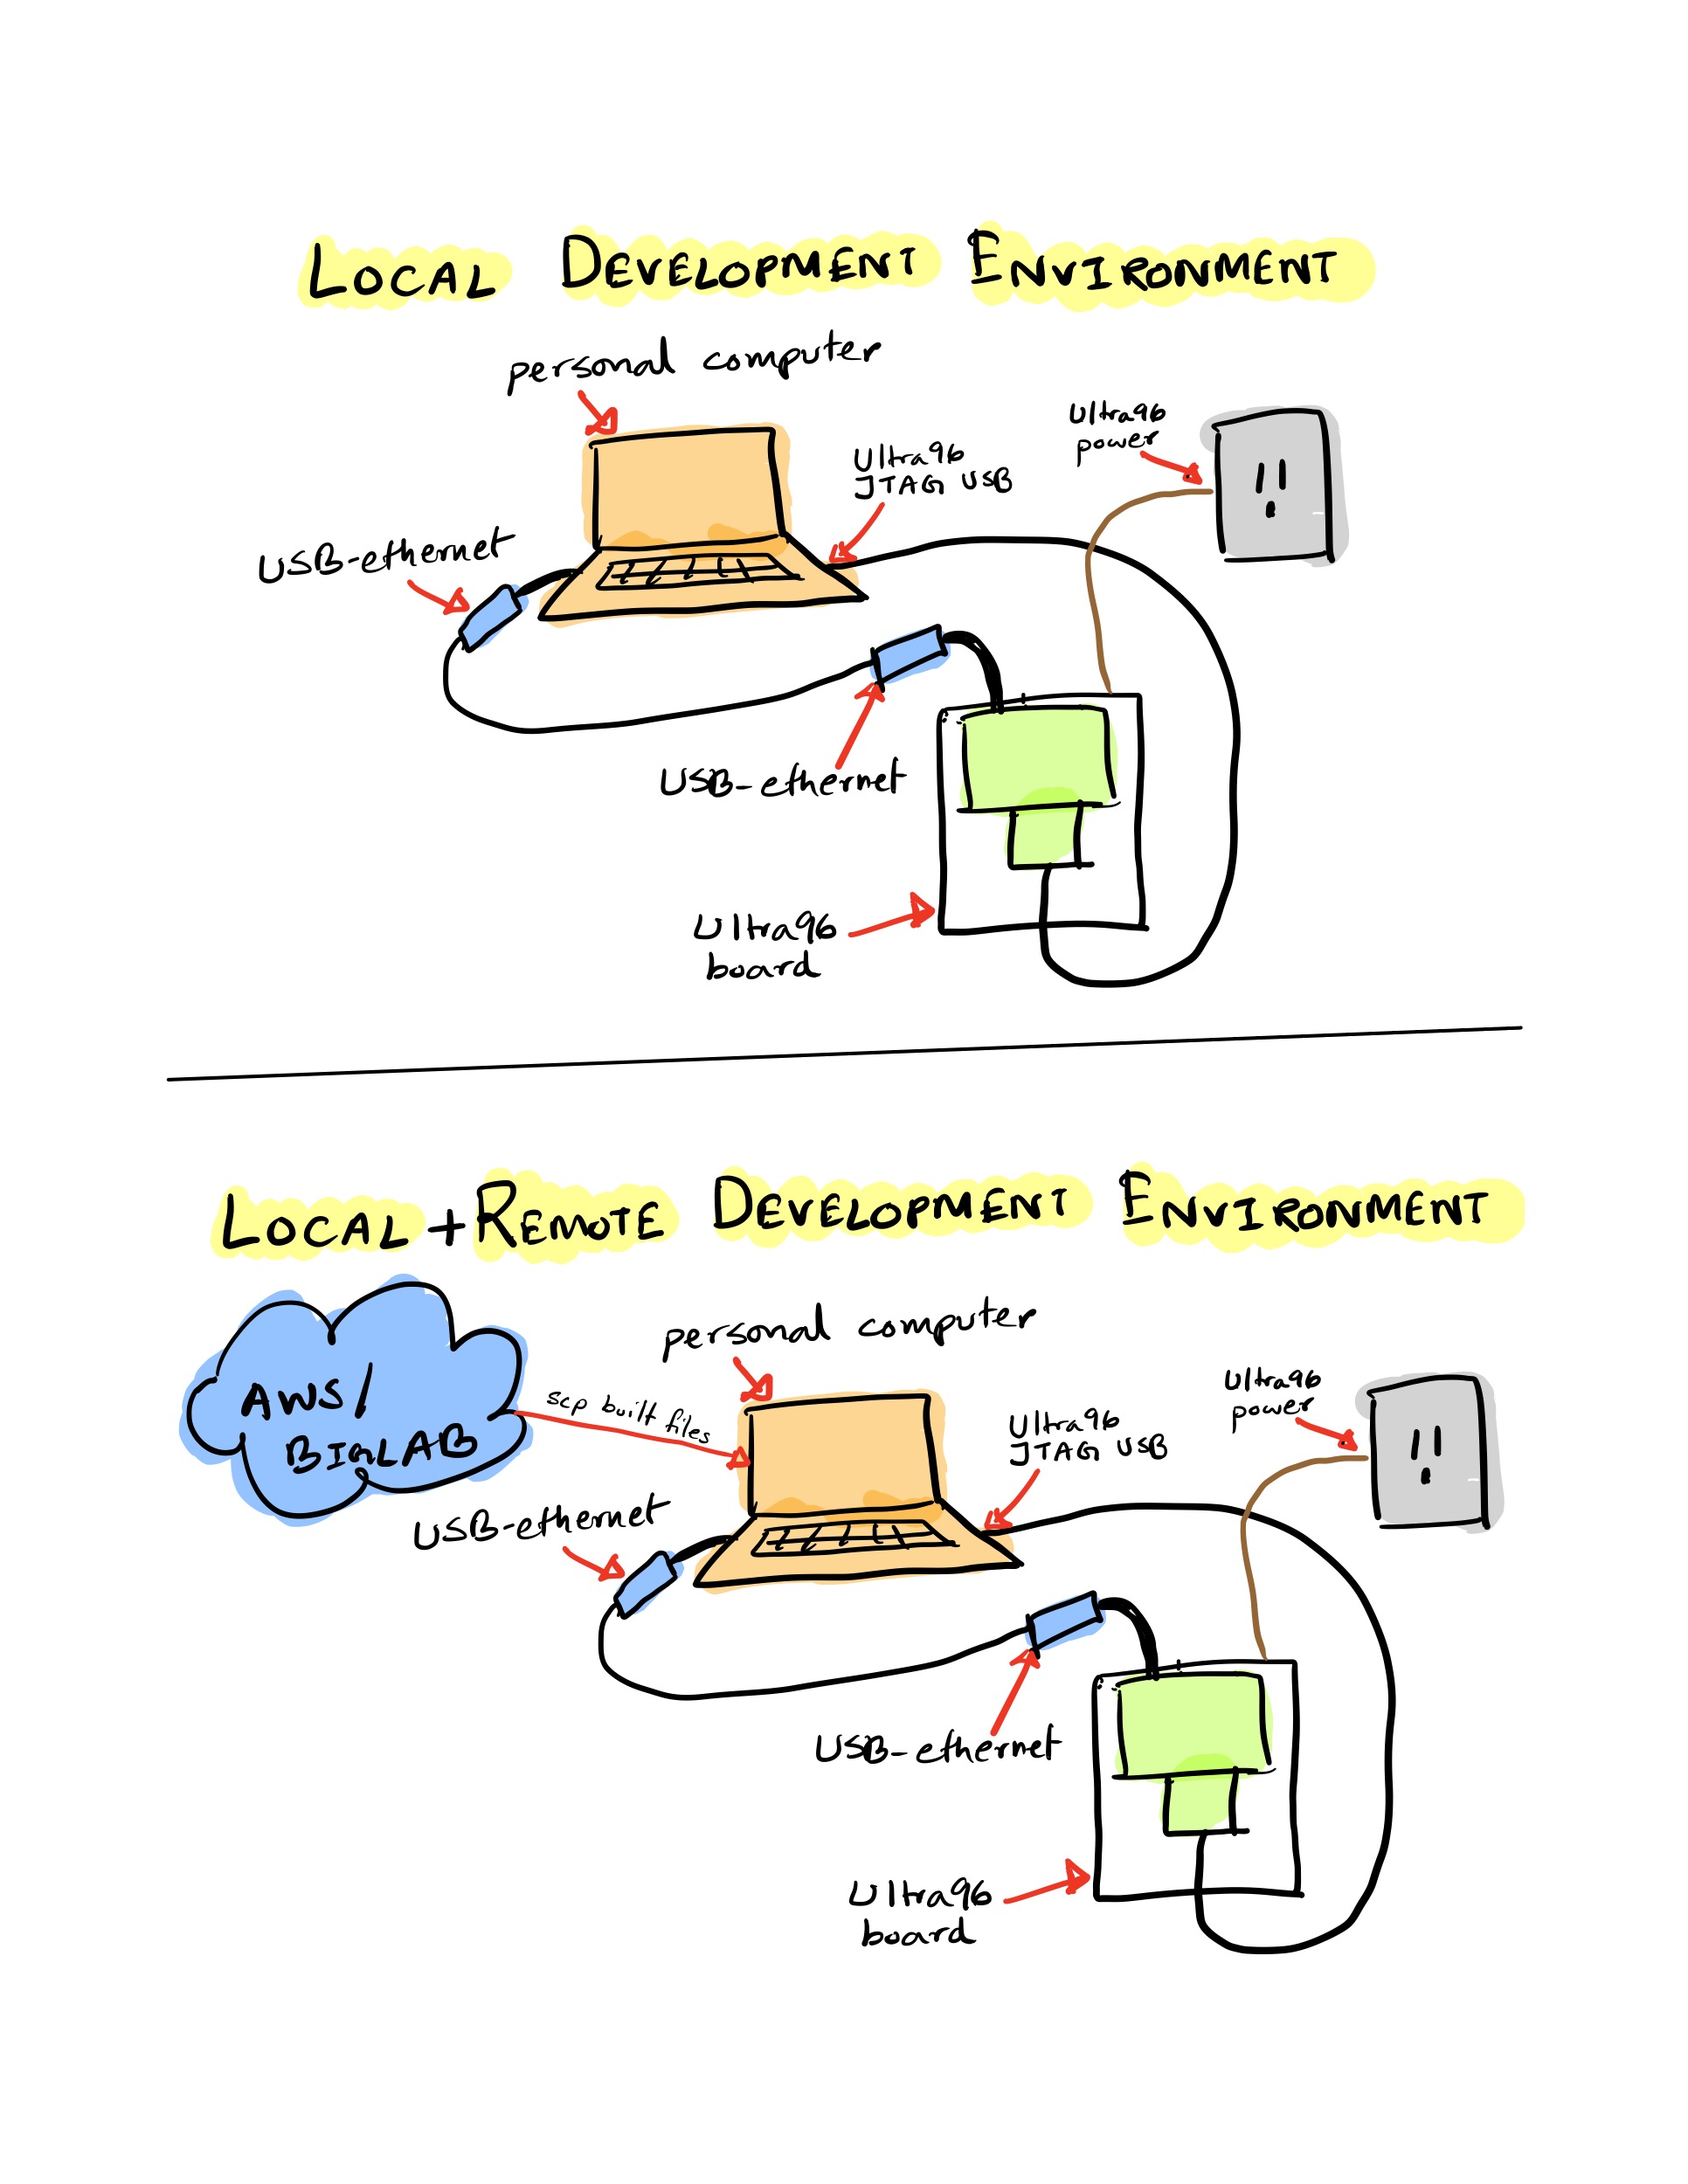 LOCAL DEVELOPMENT ENVIRONMENT
personal computer
Ultra96
power
Ultra96
JTAG USB
USB-ethernet
USB-ethernet
Ultra96
board
LOCAL + REMOTE DEVELOPMENT ENVIRONMENT
personal computer
AWS/
BIGLAB
scp built files
Ultra96
power
Ultra96
JTAG USB
USB-ethernet
USB-ethernet
Ultra96
board